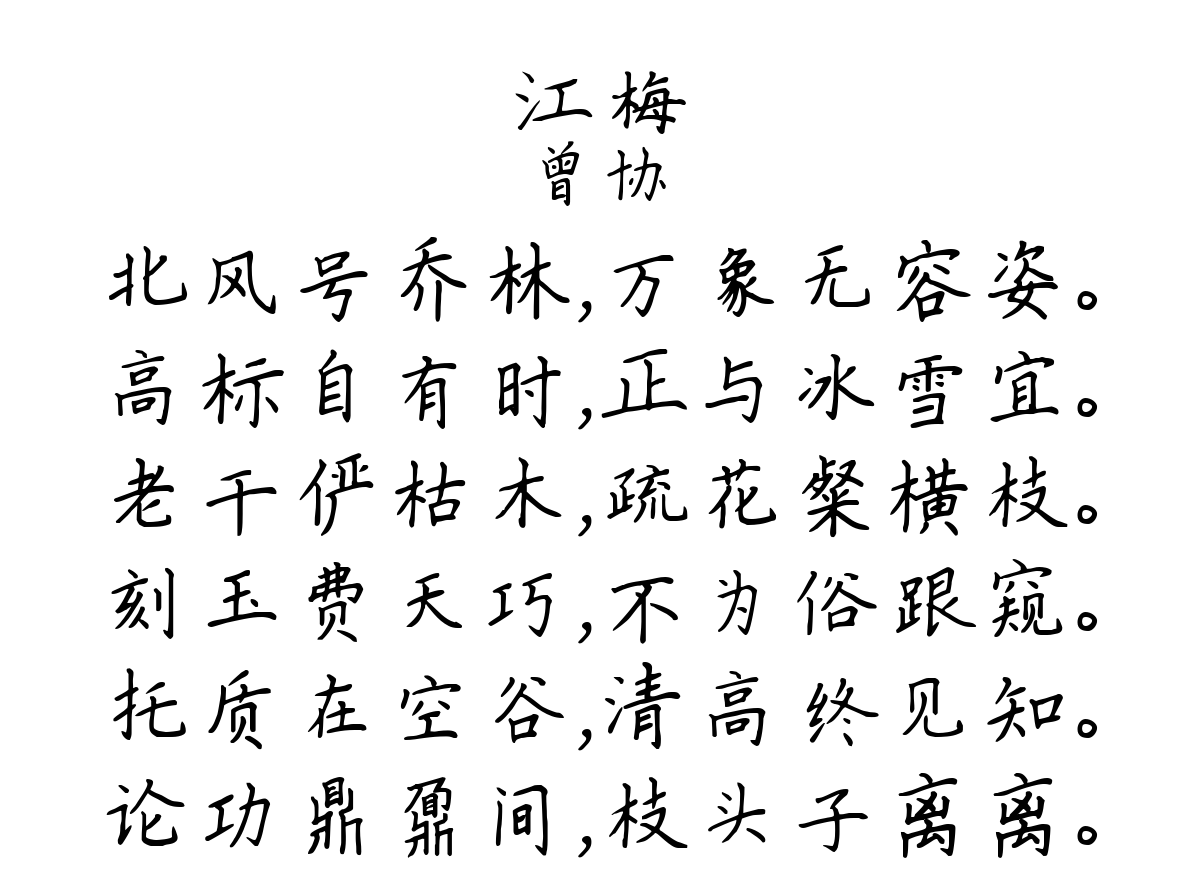 江梅
曾协
北风号乔林,万象无容姿。
高标自有时,正与冰雪宜。
老干俨枯木,疏花粲横枝。
刻玉费天巧,不为俗跟窥。
托质在空谷,清高终见知。
论功鼎鼐间,枝头子离离。